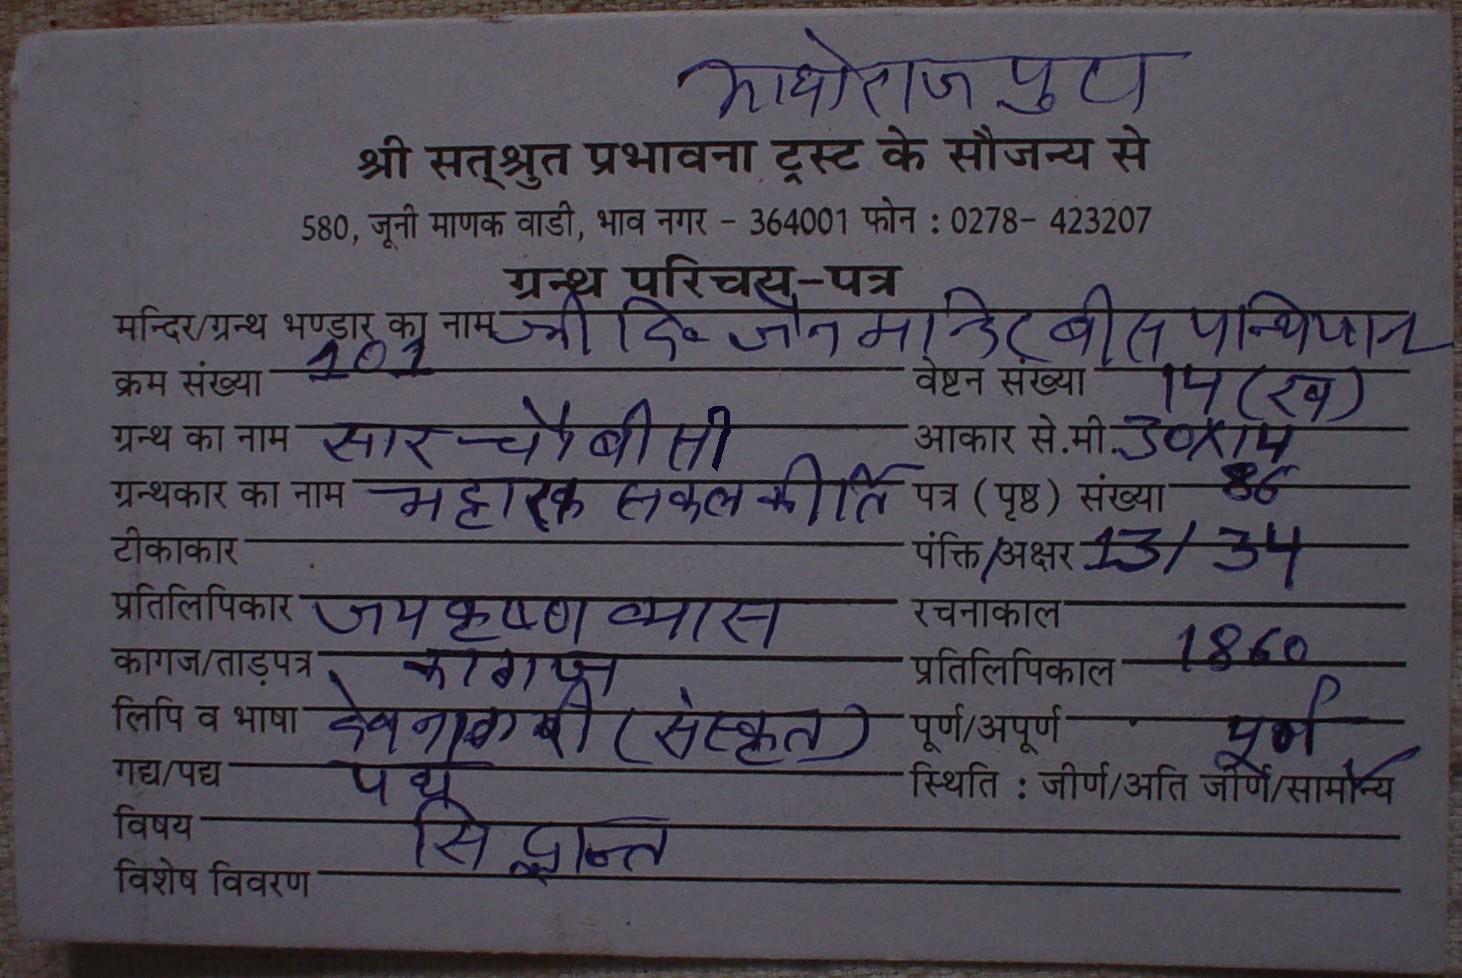 माधोराजपुरा
श्री सत्श्रुत प्रभावना ट्रस्ट के सौजन्य से
580, जूनी माणक वाडी, भाव नगर - 364001 फोन : 0278- 423207
ग्रन्थ परिचय-पत्र
मन्दिर/ग्रन्थ भण्डार का नाम श्री दि० जैन मन्दिर बीस पन्थियान
क्रम संख्या 101 वेष्टन संख्या 14 (ख)
ग्रन्थ का नाम सार चौबीसी आकार से.मी. 30X14
ग्रन्थकार का नाम भट्टारक सकलकीर्ति पत्र (पृष्ठ) संख्या 86
टीकाकार पंक्ति/अक्षर 13/34
प्रतिलिपिकार जयकृष्ण व्यास रचनाकाल
कागज/ताड़पत्र कागज प्रतिलिपिकाल 1860
लिपि व भाषा देवनागरी (संस्कृत) पूर्ण/अपूर्ण पूर्ण
गद्य/पद्य पद्य स्थिति : जीर्ण/अति जीर्ण/सामान्य
विषय सिद्धान्त
विशेष विवरण